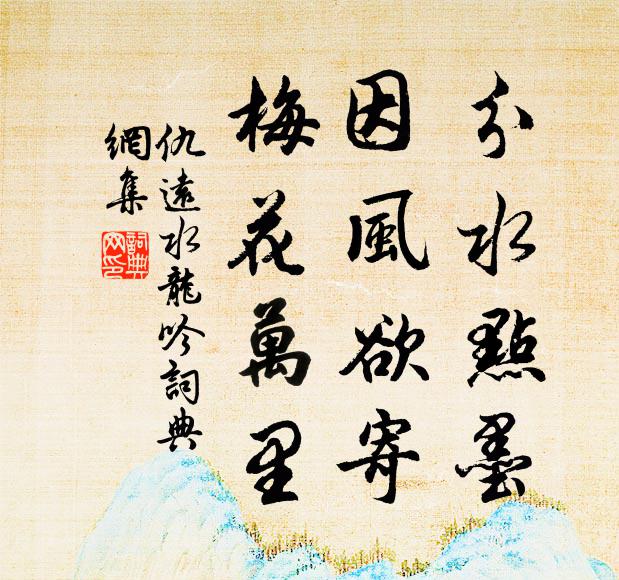 分水點墨
因風欲寄
梅花萬里
仇遠水龍吟詞典
網集
詞典
网印